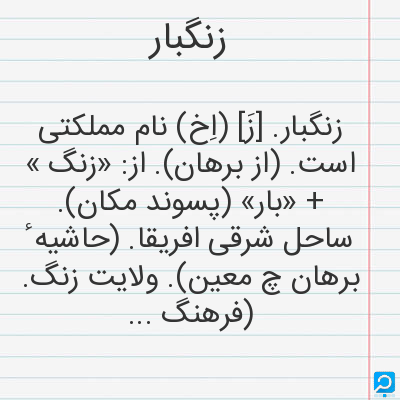 زنگبار
زنگبار. [زَ] (اِخ) نام مملکتی
است. (از برهان). از: «زنگ »
+ «بار» (پسوند مکان).
ساحل شرقی افریقا. (حاشیه ٔ
برهان چ معین). ولایت زنگ.
(فرهنگ ...